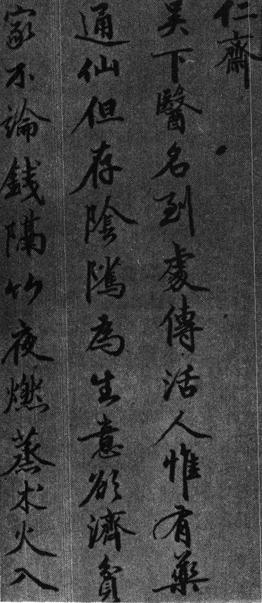 仁齋
吴下醫名到處傳活人惟有藥
通仙但存陰隲為生意欲濟貧
家不論錢隔竹夜燃蒸朮火入